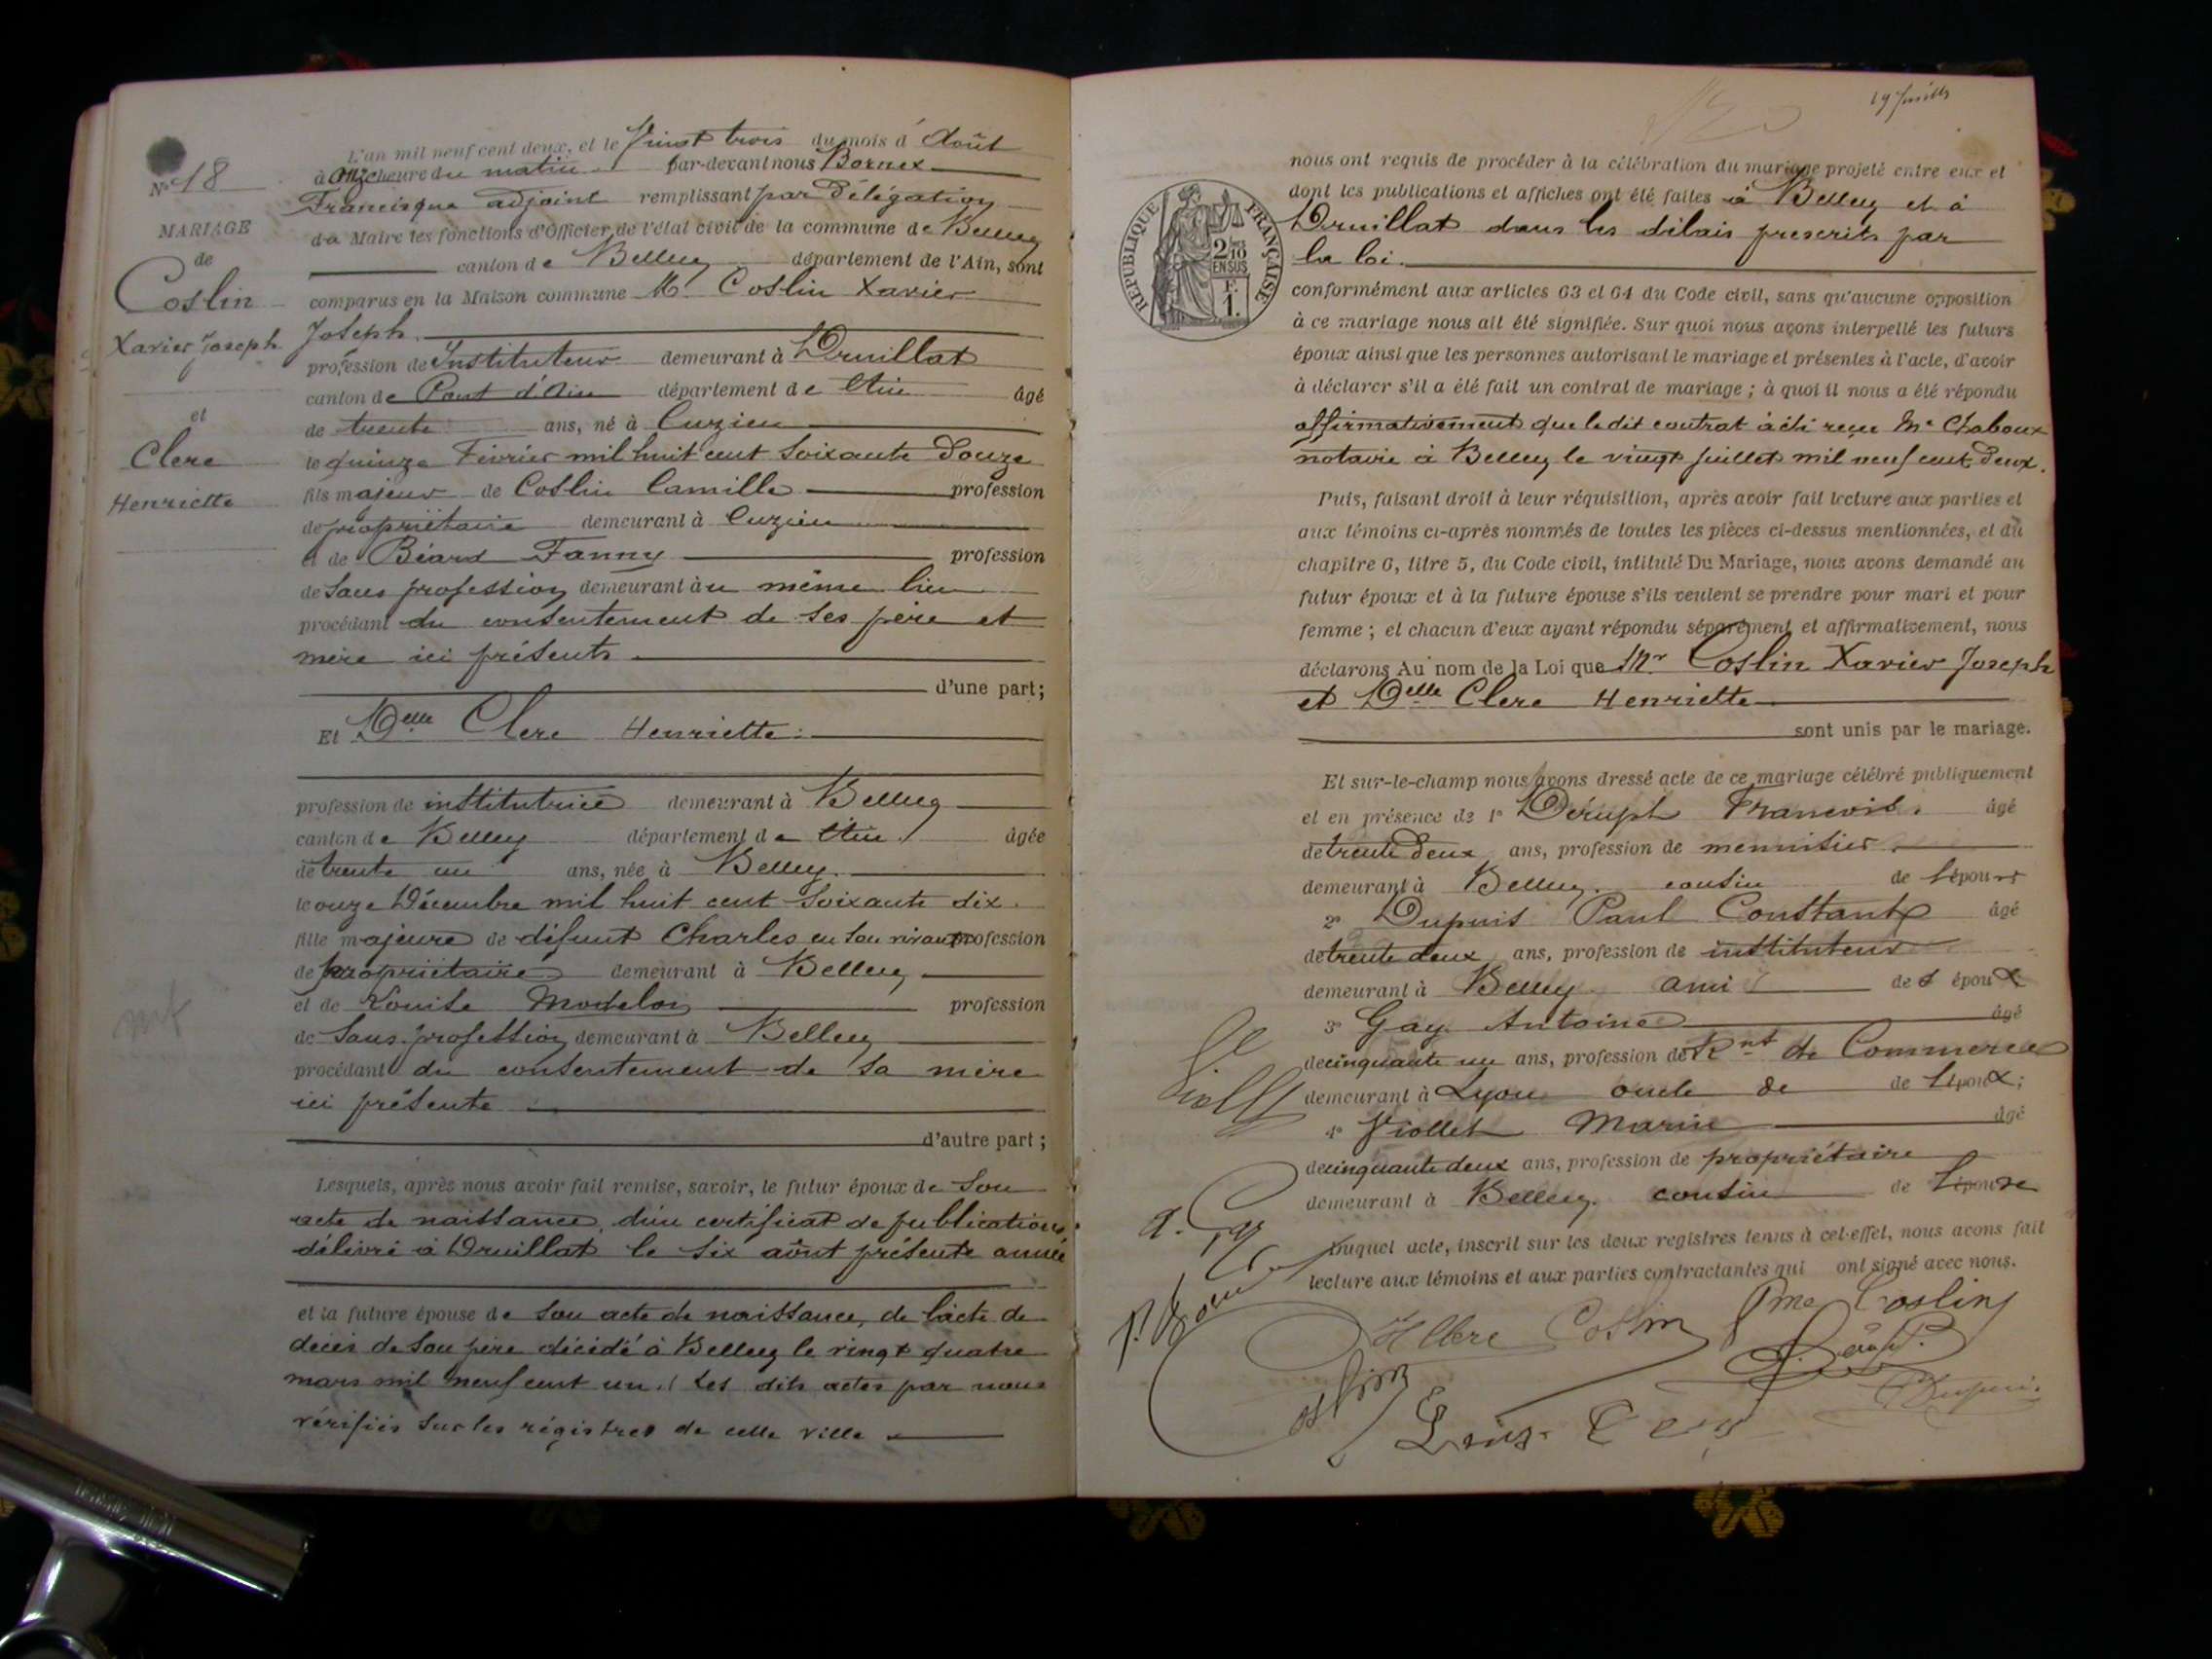 N° 18
MARIAGE
de
Coslin
Xavier Joseph
et
Clerc
Henriette
L'an mil neuf cent deux, et le Vingt trois du mois d'Août
à onze heure du matin par-devant nous Bornex
Francisque adjoint remplissant par délégation
du Maire les fonctions d'Officier de l'état civil de la commune de Belley
canton de Belley département de l'Ain, sont
comparus en la Maison commune Mr Coslin Xavier
Joseph
profession de Instituteur demeurant à Druillat
canton de Pont d'Ain département de l'Ain âgé
de trente ans, né à Cuzieu
le quinze Février mil huit cent soixante douze
fils majeur de Coslin Camille profession
de propriétaire demeurant à Cuzieu
et de Béard Fanny profession
de sans profession demeurant au même lieu
procédant du consentement de ses père et
mère ici présents
d'une part;
Et Delle Clerc Henriette
profession de institutrice demeurant à Belley
canton de Belley département de l'Ain âgée
de trente un ans, née à Belley.
le onze Décembre mil huit cent soixante dix.
fille majeure de défunt Charles en son vivant profession
de propriétaire demeurant à Belley
et de Louise profession
de sans profession demeurant à Belley
procédant du consentement de sa mère
ici présente
d'autre part;
Lesquels, après nous avoir fait remise, savoir, le futur époux de son
acte de naissance, d'un certificat de publications
délivré à Druillat le six août présente année
et la future épouse de son acte de naissance, de l'acte de
décès de son père décédé à Belley le vingt quatre
mars mil neuf cent un. Les dits actes par nous
vérifiés sur les régistres de cette ville
19 Juillet
RÉPUBLIQUE FRANÇAISE
2/10 EN SUS
F. 1.
nous ont requis de procéder à la célébration du mariage projeté entre eux et
dont les publications et affiches ont été faites à Belley et à
Druillat dans les délais prescrits par
la loi.
conformément aux articles 63 et 64 du Code civil, sans qu'aucune opposition
à ce mariage nous ait été signifiée. Sur quoi nous avons interpellé les futurs
époux ainsi que les personnes autorisant le mariage et présentes à l'acte, d'avoir
à déclarer s'il a été fait un contrat de mariage; à quoi il nous a été répondu
affirmativement que le dit contrat à été reçu Me Chaboux
notaire à Belley le vingt Juillet mil neuf cent deux.
Puis, faisant droit à leur réquisition, après avoir fait lecture aux parties et
aux témoins ci-après nommés de toutes les pièces ci-dessus mentionnées, et du
chapitre 6, titre 5, du Code civil, intitulé Du Mariage, nous avons demandé au
futur époux et à la future épouse s'ils veulent se prendre pour mari et pour
femme; et chacun d'eux ayant répondu séparément et affirmativement, nous
déclarons Au nom de la Loi que Mr Coslin Xavier Joseph
et Delle Clerc Henriette
sont unis par le mariage.
Et sur-le-champ nous avons dressé acte de ce mariage célébré publiquement
et en présence de 1° Déruph François. âgé
de trente deux ans, profession de menuisier
demeurant à Belley. cousin de l'épouse
2° Dupuis Paul Constant âgé
de trente deux ans, profession de instituteur
demeurant à Belley ami de l'époux
3° Gay Antoine âgé
de cinquante un ans, profession de Rnt de Commerce
demeurant à Lyon oncle de de l'époux;
4° Viollet Marie âgé
de cinquante deux ans, profession de propriétaire
demeurant à Belley. cousin de l'épouse
Duquel acte, inscrit sur les deux registres tenus à cet effet, nous avons fait
lecture aux témoins et aux parties contractantes qui ont signé avec nous.
H Clerc Coslin Fme Coslin
Coslin
Dupuis